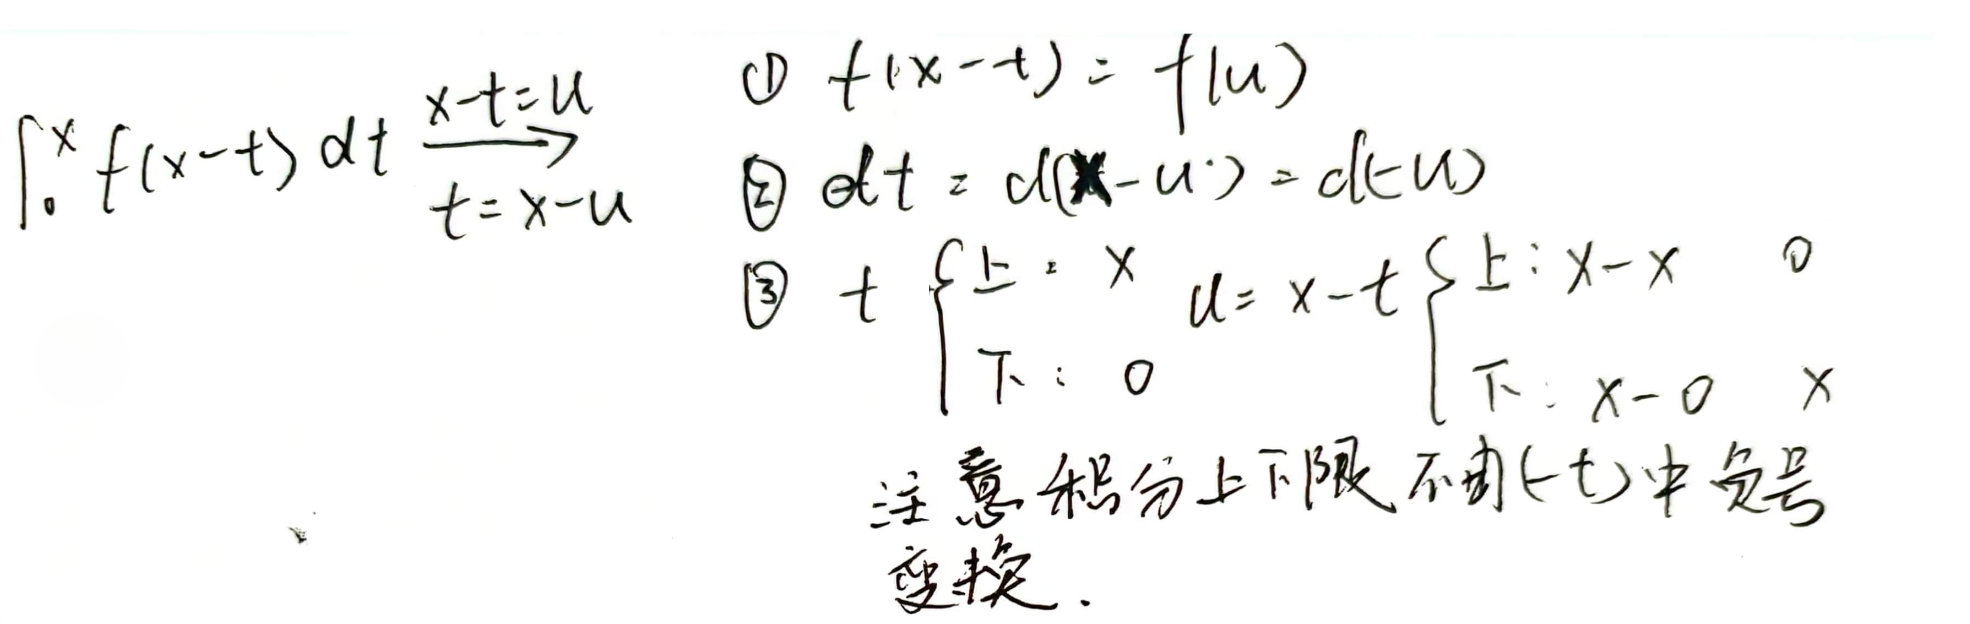 ∫₀ˣ f(x-t) dt x-t=u → t=x-u
① f(x-t) = f(u)
② dt = d(x-u) = d(-u)
③ t { 上: x 下: 0 u = x-t { 上: x-x 0 下: x-0 x
注意积分上下限不由(-t)中负号
变换.